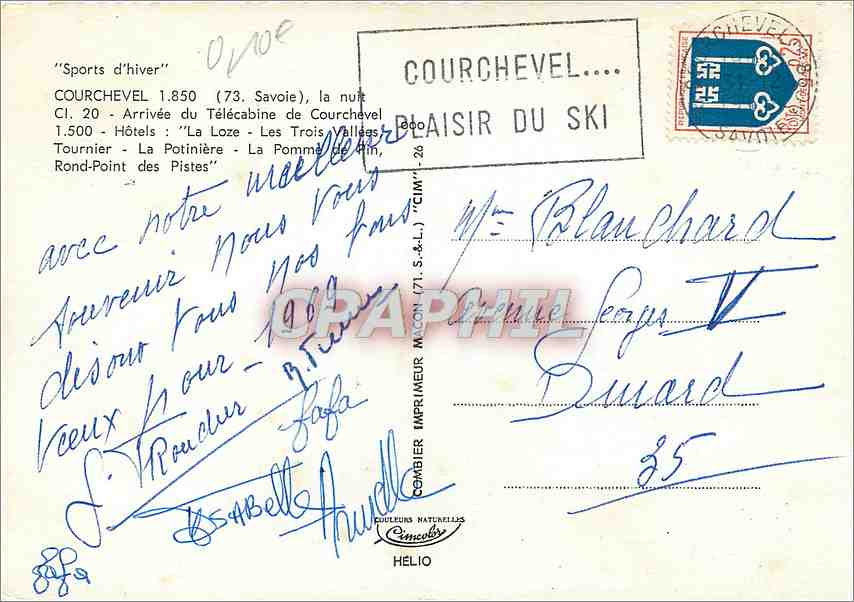 0,10€
"Sports d'hiver"
COURCHEVEL 1.850 (73. Savoie), la nuit
CI. 20 - Arrivée du Télécabine de Courchevel
1.500 - Hôtels : "La Loze - Les Trois Vallées,
Tournier - La Potinière - La Pomme de Pin,
Rond-Point des Pistes"
COURCHEVEL....
PLAISIR DU SKI
COURCHEVEL
SAVOIE
REPUBLIQUE FRANÇAISE
avec notre meilleur
souvenir nous vous
disons tous nos bons
vœux pour - 1969
fafa
ISABelle
fafa
COMBIER IMPRIMEUR MACON (71. S.-&-L.) "CIM" - 26
CPAPHIL
COULEURS NATURELLES
Cimcolor
HÉLIO
Mme Blanchard
avenue Georges V
Dinard
35